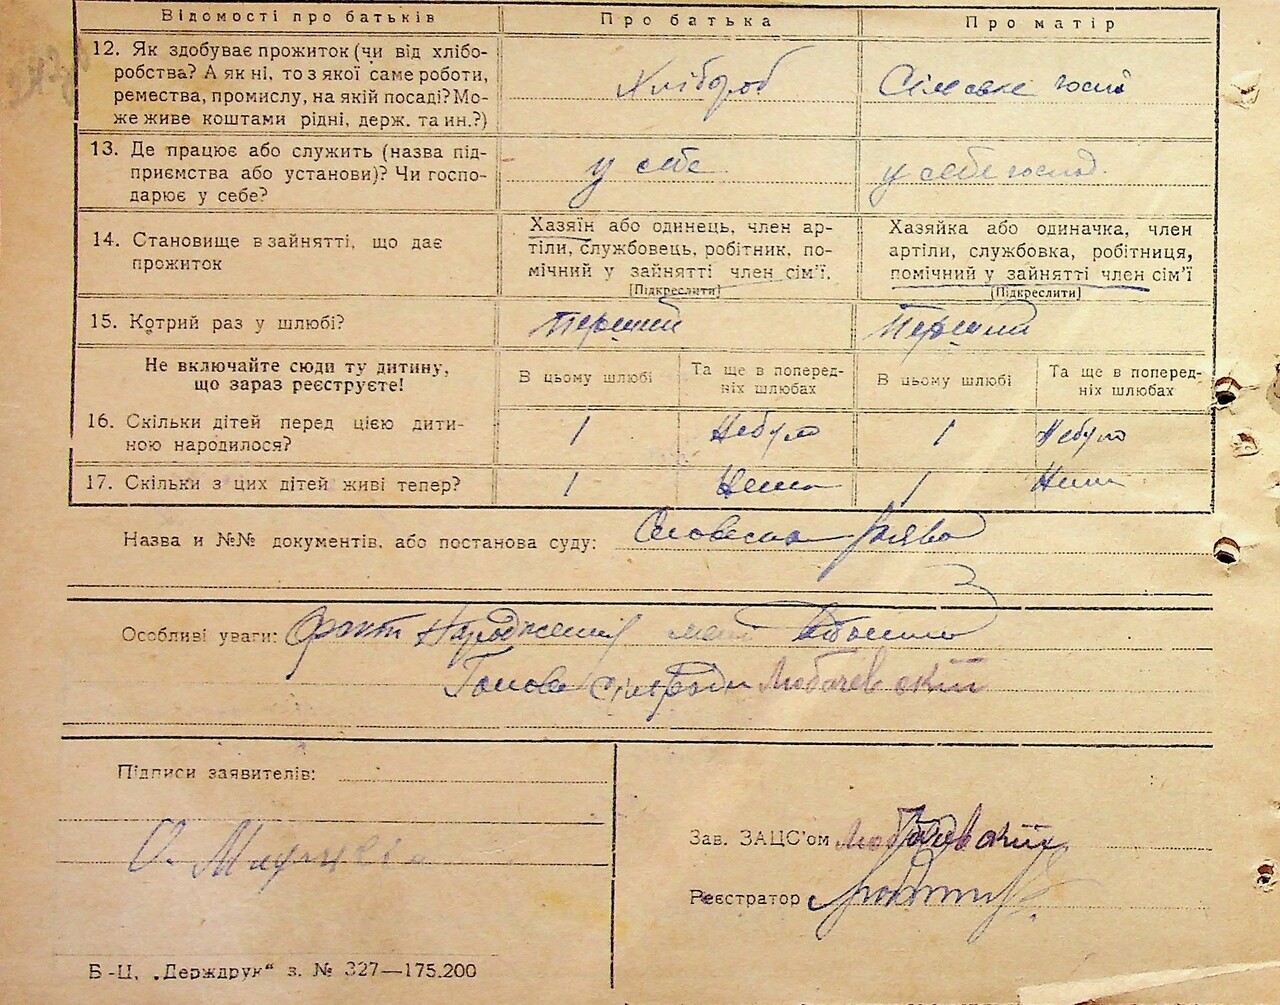 Відомості про батьків
Про батька
Про матір
12. Як здобуває прожиток (чи від хлібо-
робства? А як ні, то з якої саме роботи,
ремества, промислу, на якій посаді? Мо-
же живе коштами рідні, держ. та ин.?)
Хлібороб
Сільське госп
13. Де працює або служить (назва під-
приємства або установи)? Чи госпо-
дарює у себе?
у себе
у себе господ.
14. Становище в зайнятті, що дає
прожиток
Хазяїн або одинець, член ар-
тіли, службовець, робітник, по-
мічний у зайнятті член сім'ї.
(Підкреслити)
Хазяйка або одиначка, член
артіли, службовка, робітниця,
помічний у зайнятті член сім'ї
(Підкреслити)
15. Котрий раз у шлюбі?
Перший
Перший
Не включайте сюди ту дитину,
що зараз реєструєте!
В цьому шлюбі
Та ще в поперед-
ніх шлюбах
В цьому шлюбі
Та ще в поперед-
ніх шлюбах
16. Скільки дітей перед цією дити-
ною народилося?
1
Небуло
1
Небуло
17. Скільки з цих дітей живі тепер?
1
Нема
1
Нема
Назва и №№ документів, або постанова суду:
Словесна заява
Особливі уваги: Факт народження мені відомий
Голова сільради Любачевский
Підписи заявителів:
О.
Зав. ЗАЦС'ом Любачевский
Реєстратор
Б-Ц, „Держдрук“ з. № 327—175.200